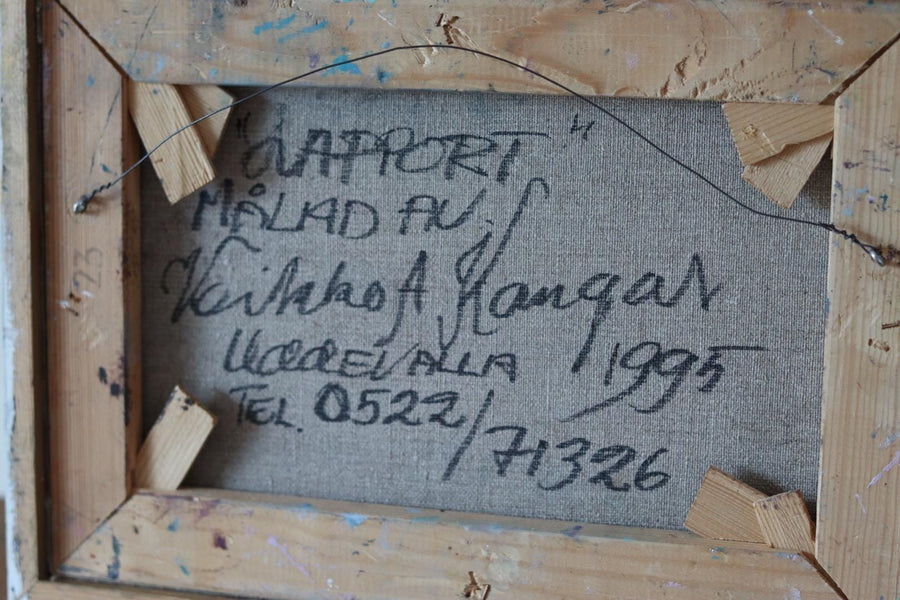 "LAPPORT"
MÅLAD AV.
Veikko A Kangas
UDDEVALLA 1995
TEL. 0522/71326